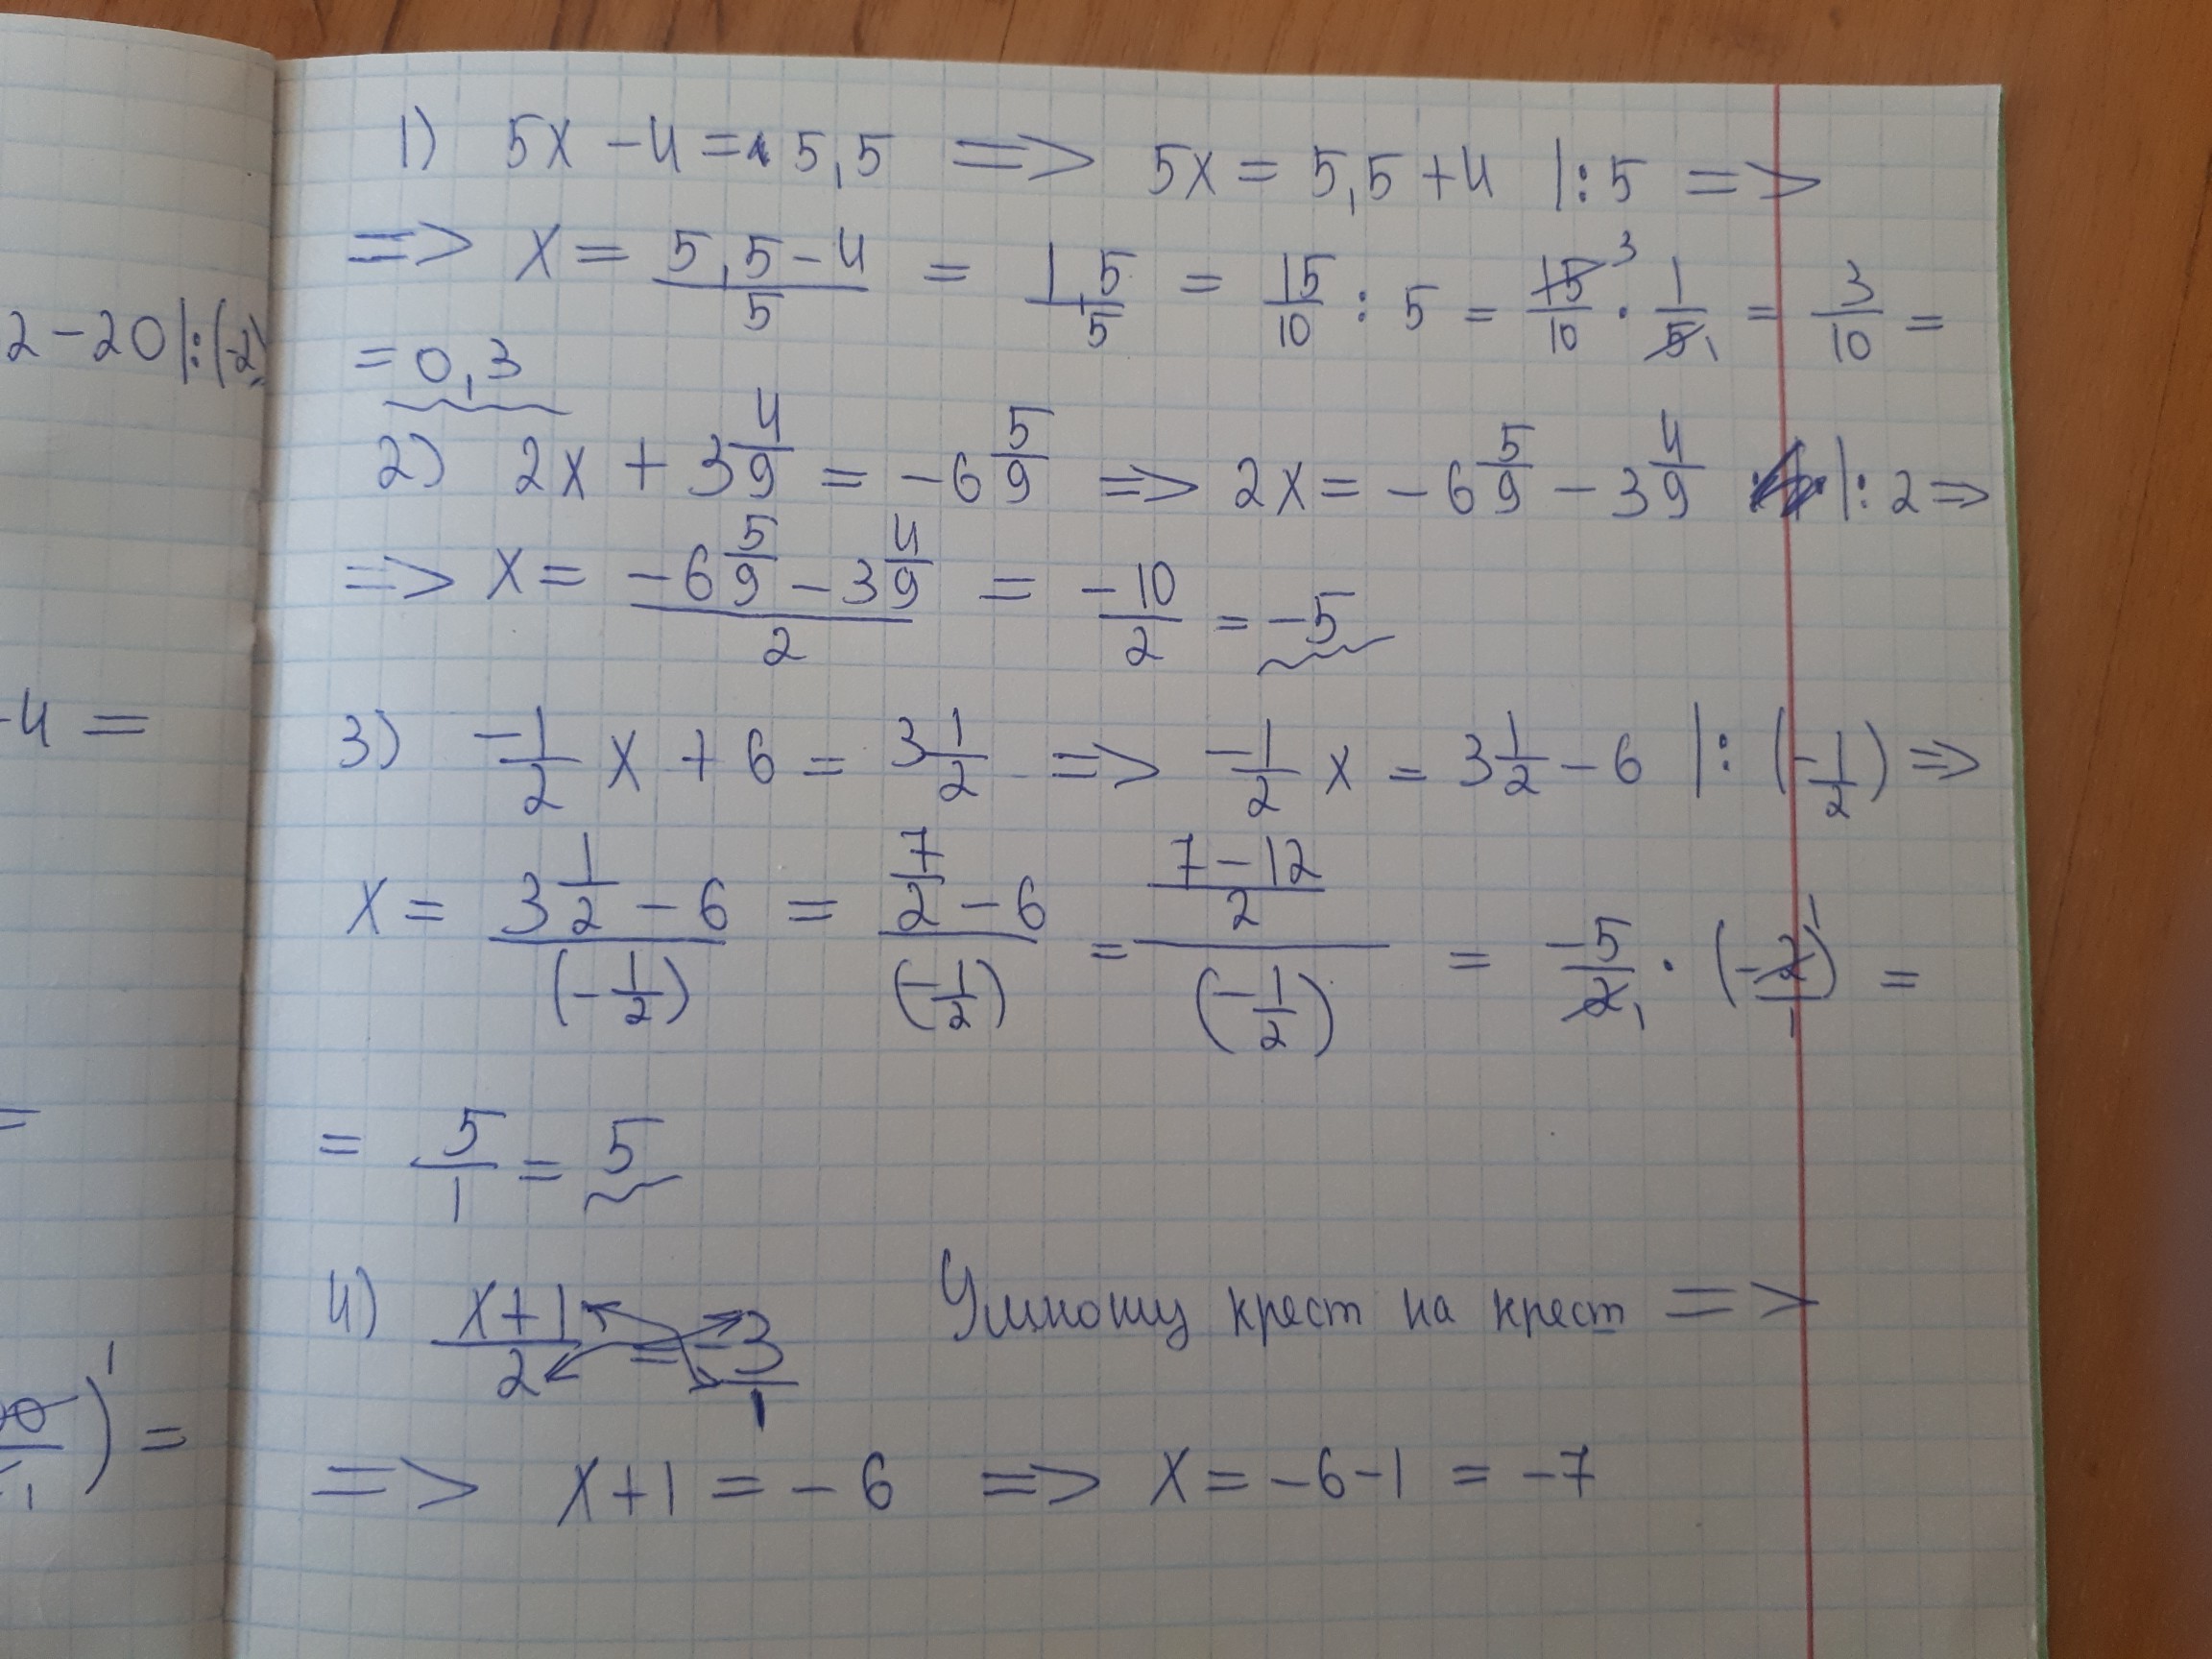 2-20|:(-2)
-4 =
=
1) 5x - 4 = 5,5 => 5x = 5,5 + 4 |:5 =>
=> x = (5,5 - 4)/5 = 1,5/5 = 15/10 : 5 = 15/10 ³ · 1/5₁ = 3/10 =
= 0,3
2) 2x + 3 4/9 = -6 5/9 => 2x = -6 5/9 - 3 4/9 |:2 =>
=> x = (-6 5/9 - 3 4/9)/2 = -10/2 = -5
3) -1/2 x + 6 = 3 1/2 => -1/2 x = 3 1/2 - 6 |: (-1/2) =>
x = (3 1/2 - 6)/(-1/2) = (7/2 - 6)/(-1/2) = ((7-12)/2)/(-1/2) = -5/2₁ · (-2/1)¹ =
= 5/1 = 5
4) (x+1)/2 = -3/1 Умножу крест на крест =>
=> x+1 = -6 => x = -6-1 = -7